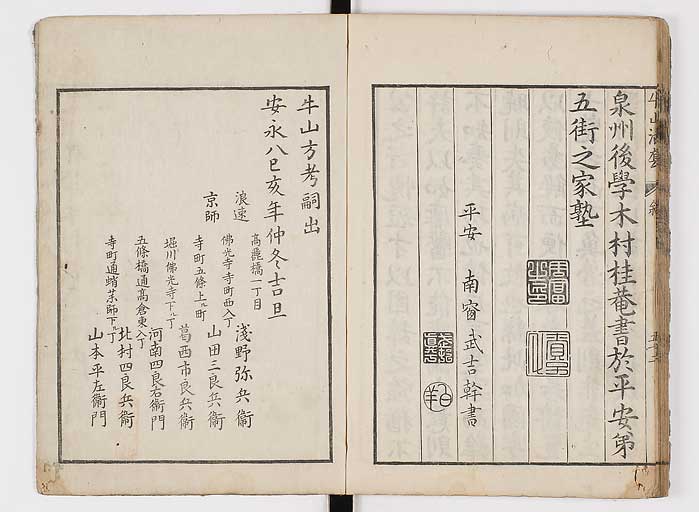 泉州後學木村桂菴書於平安第
五街之家塾
平安 南窗 武吉幹書
牛山方考嗣出
安永八巳亥年仲冬吉旦
浪速 高麗橋一丁目 淺野弥兵衞
京師 佛光寺寺町西入丁 山田三良兵衞
寺町五條上ル町 葛西市良兵衞
堀川佛光寺下ル丁 河南四良右衞門
五條橋通高倉東入丁 北村四良兵衞
寺町通蛸茶師下ル丁 山本平左衞門